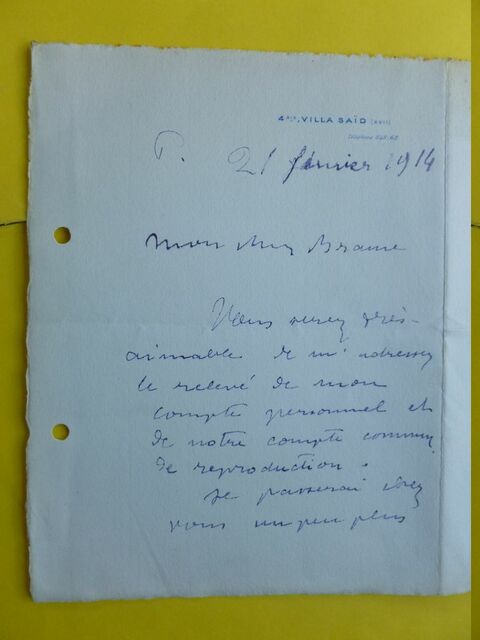 4 bis, VILLA SAÏD (XVIe)
Téléphone
P. 21 février 1914
Mon cher Brame
Vous serez très
aimable de m'adresser
le relevé de mon
compte personnel et
de notre compte commun
de reproduction.
Je passerai chez
vous un peu plus